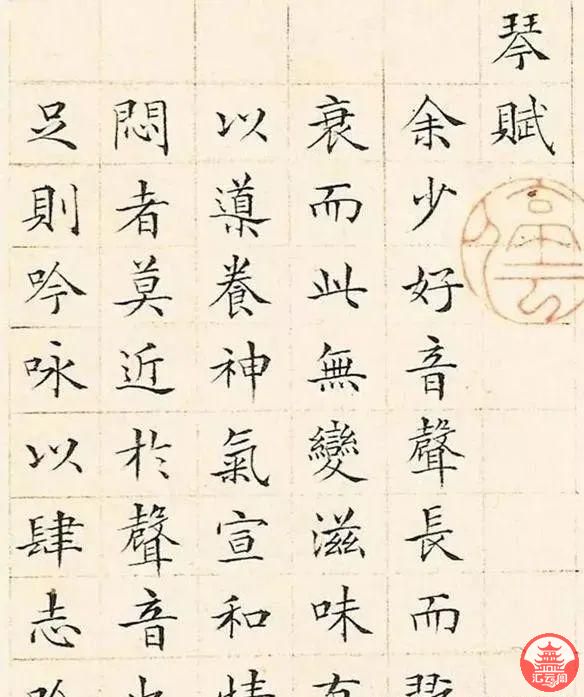 琴賦
余少好音聲長而
衰而此無變滋味
以導養神氣宣和情
悶者莫近於聲音也
足則吟咏以肆志吟
汇云阁